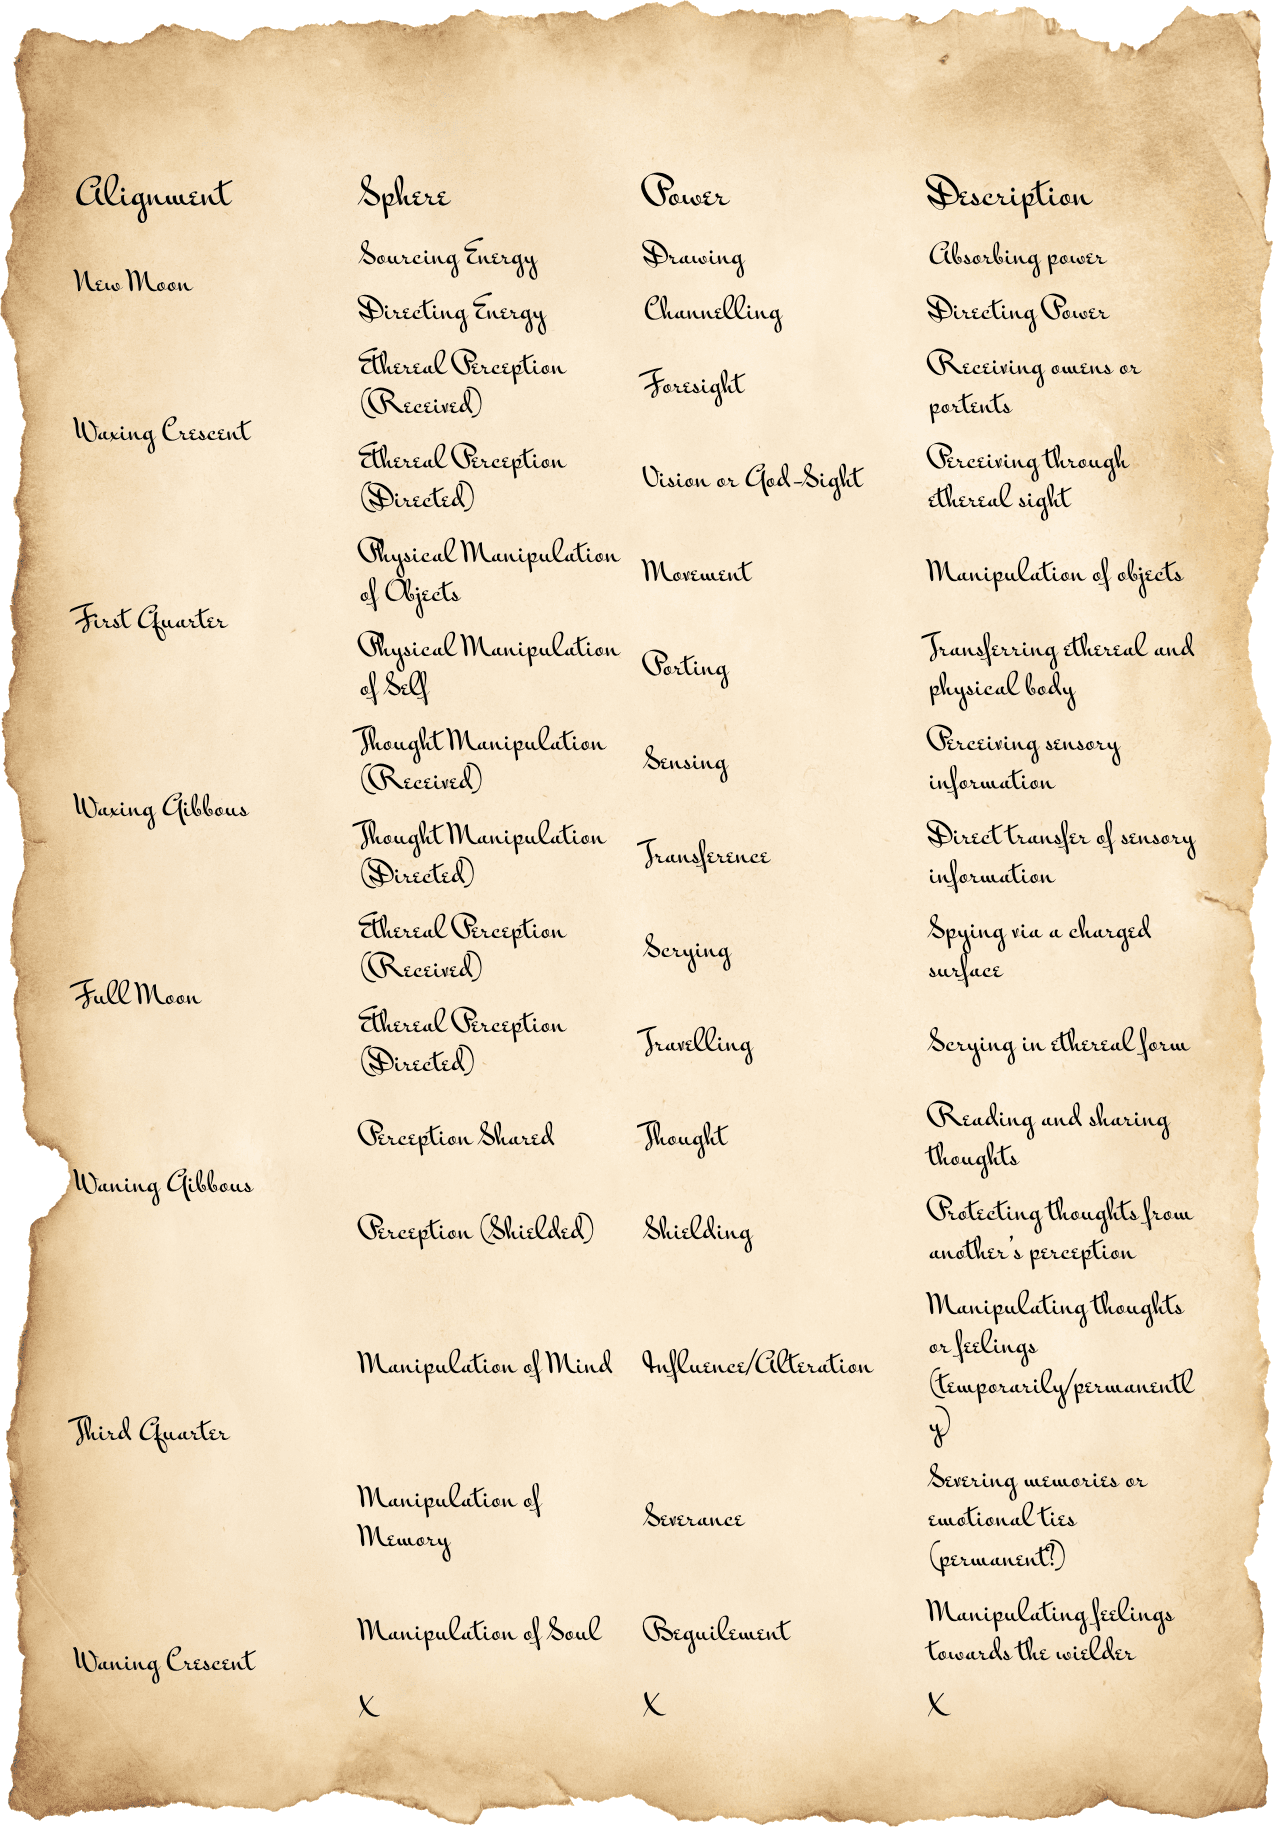 Alignment Sphere Power Description
Sourcing Energy Drawing Absorbing power
New Moon
Directing Energy Channelling Directing Power
Ethereal Perception
(Received)
Foresight
Receiving omens or
portents
Waxing Crescent
Ethereal Perception
(Directed)
Vision or God-Sight
Perceiving through
ethereal sight
Physical Manipulation
of Objects
Movement
Manipulation of objects
First Quarter
Physical Manipulation
of Self
Porting
Transferring ethereal and
physical body
Thought Manipulation
(Received)
Sensing
Perceiving sensory
information
Waxing Gibbous
Thought Manipulation
(Directed)
Transference
Direct transfer of sensory
information
Ethereal Perception
(Received)
Scrying
Spying via a charged
surface
Full Moon
Ethereal Perception
(Directed)
Travelling
Scrying in ethereal form
Perception Shared
Thought
Reading and sharing
thoughts
Waning Gibbous
Perception (Shielded)
Shielding
Protecting thoughts from
another's perception
Manipulation of Mind
Influence/Alteration
Manipulating thoughts
or feelings
(temporarily/permanentl
y)
Third Quarter
Manipulation of
Memory
Severance
Severing memories or
emotional ties
(permanent?)
Manipulation of Soul
Beguilement
Manipulating feelings
towards the wielder
Waning Crescent
X X X